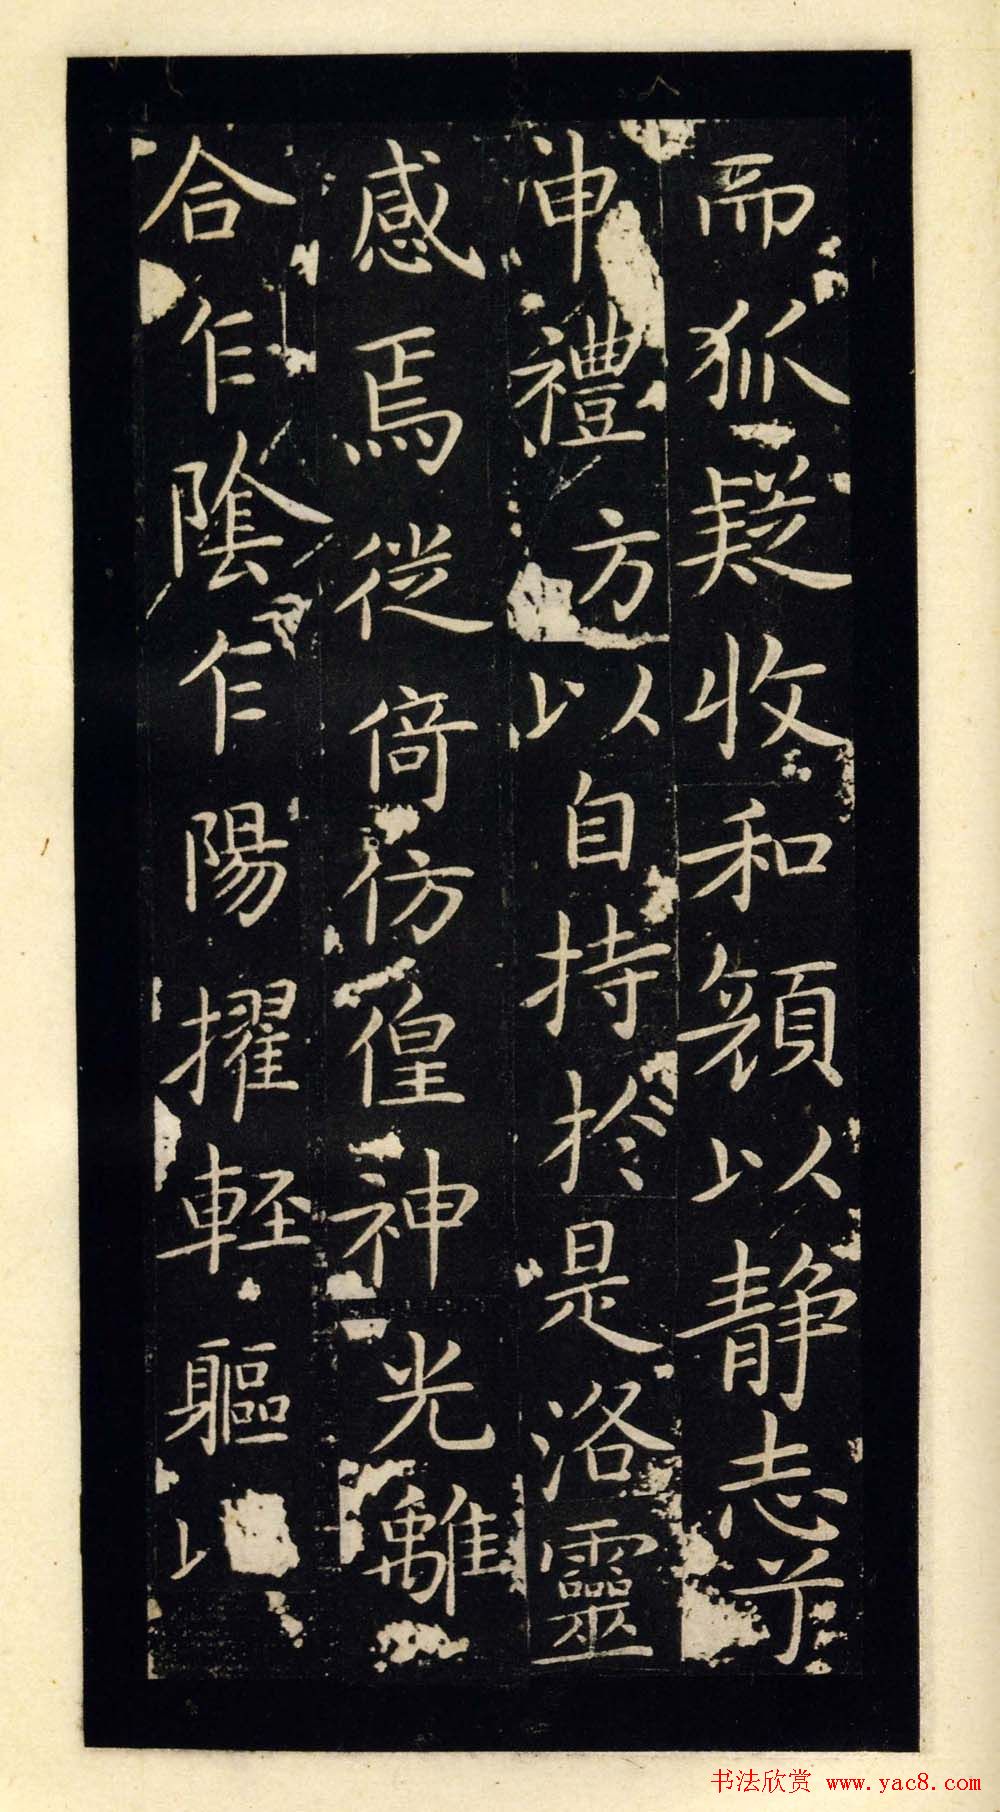 而狐疑收和顔以静志兮
申禮方以自持扵是洛靈
感焉從倚仿偟神光離
合乍陰乍陽擢軽軀以
书法欣赏 www.yac8.com